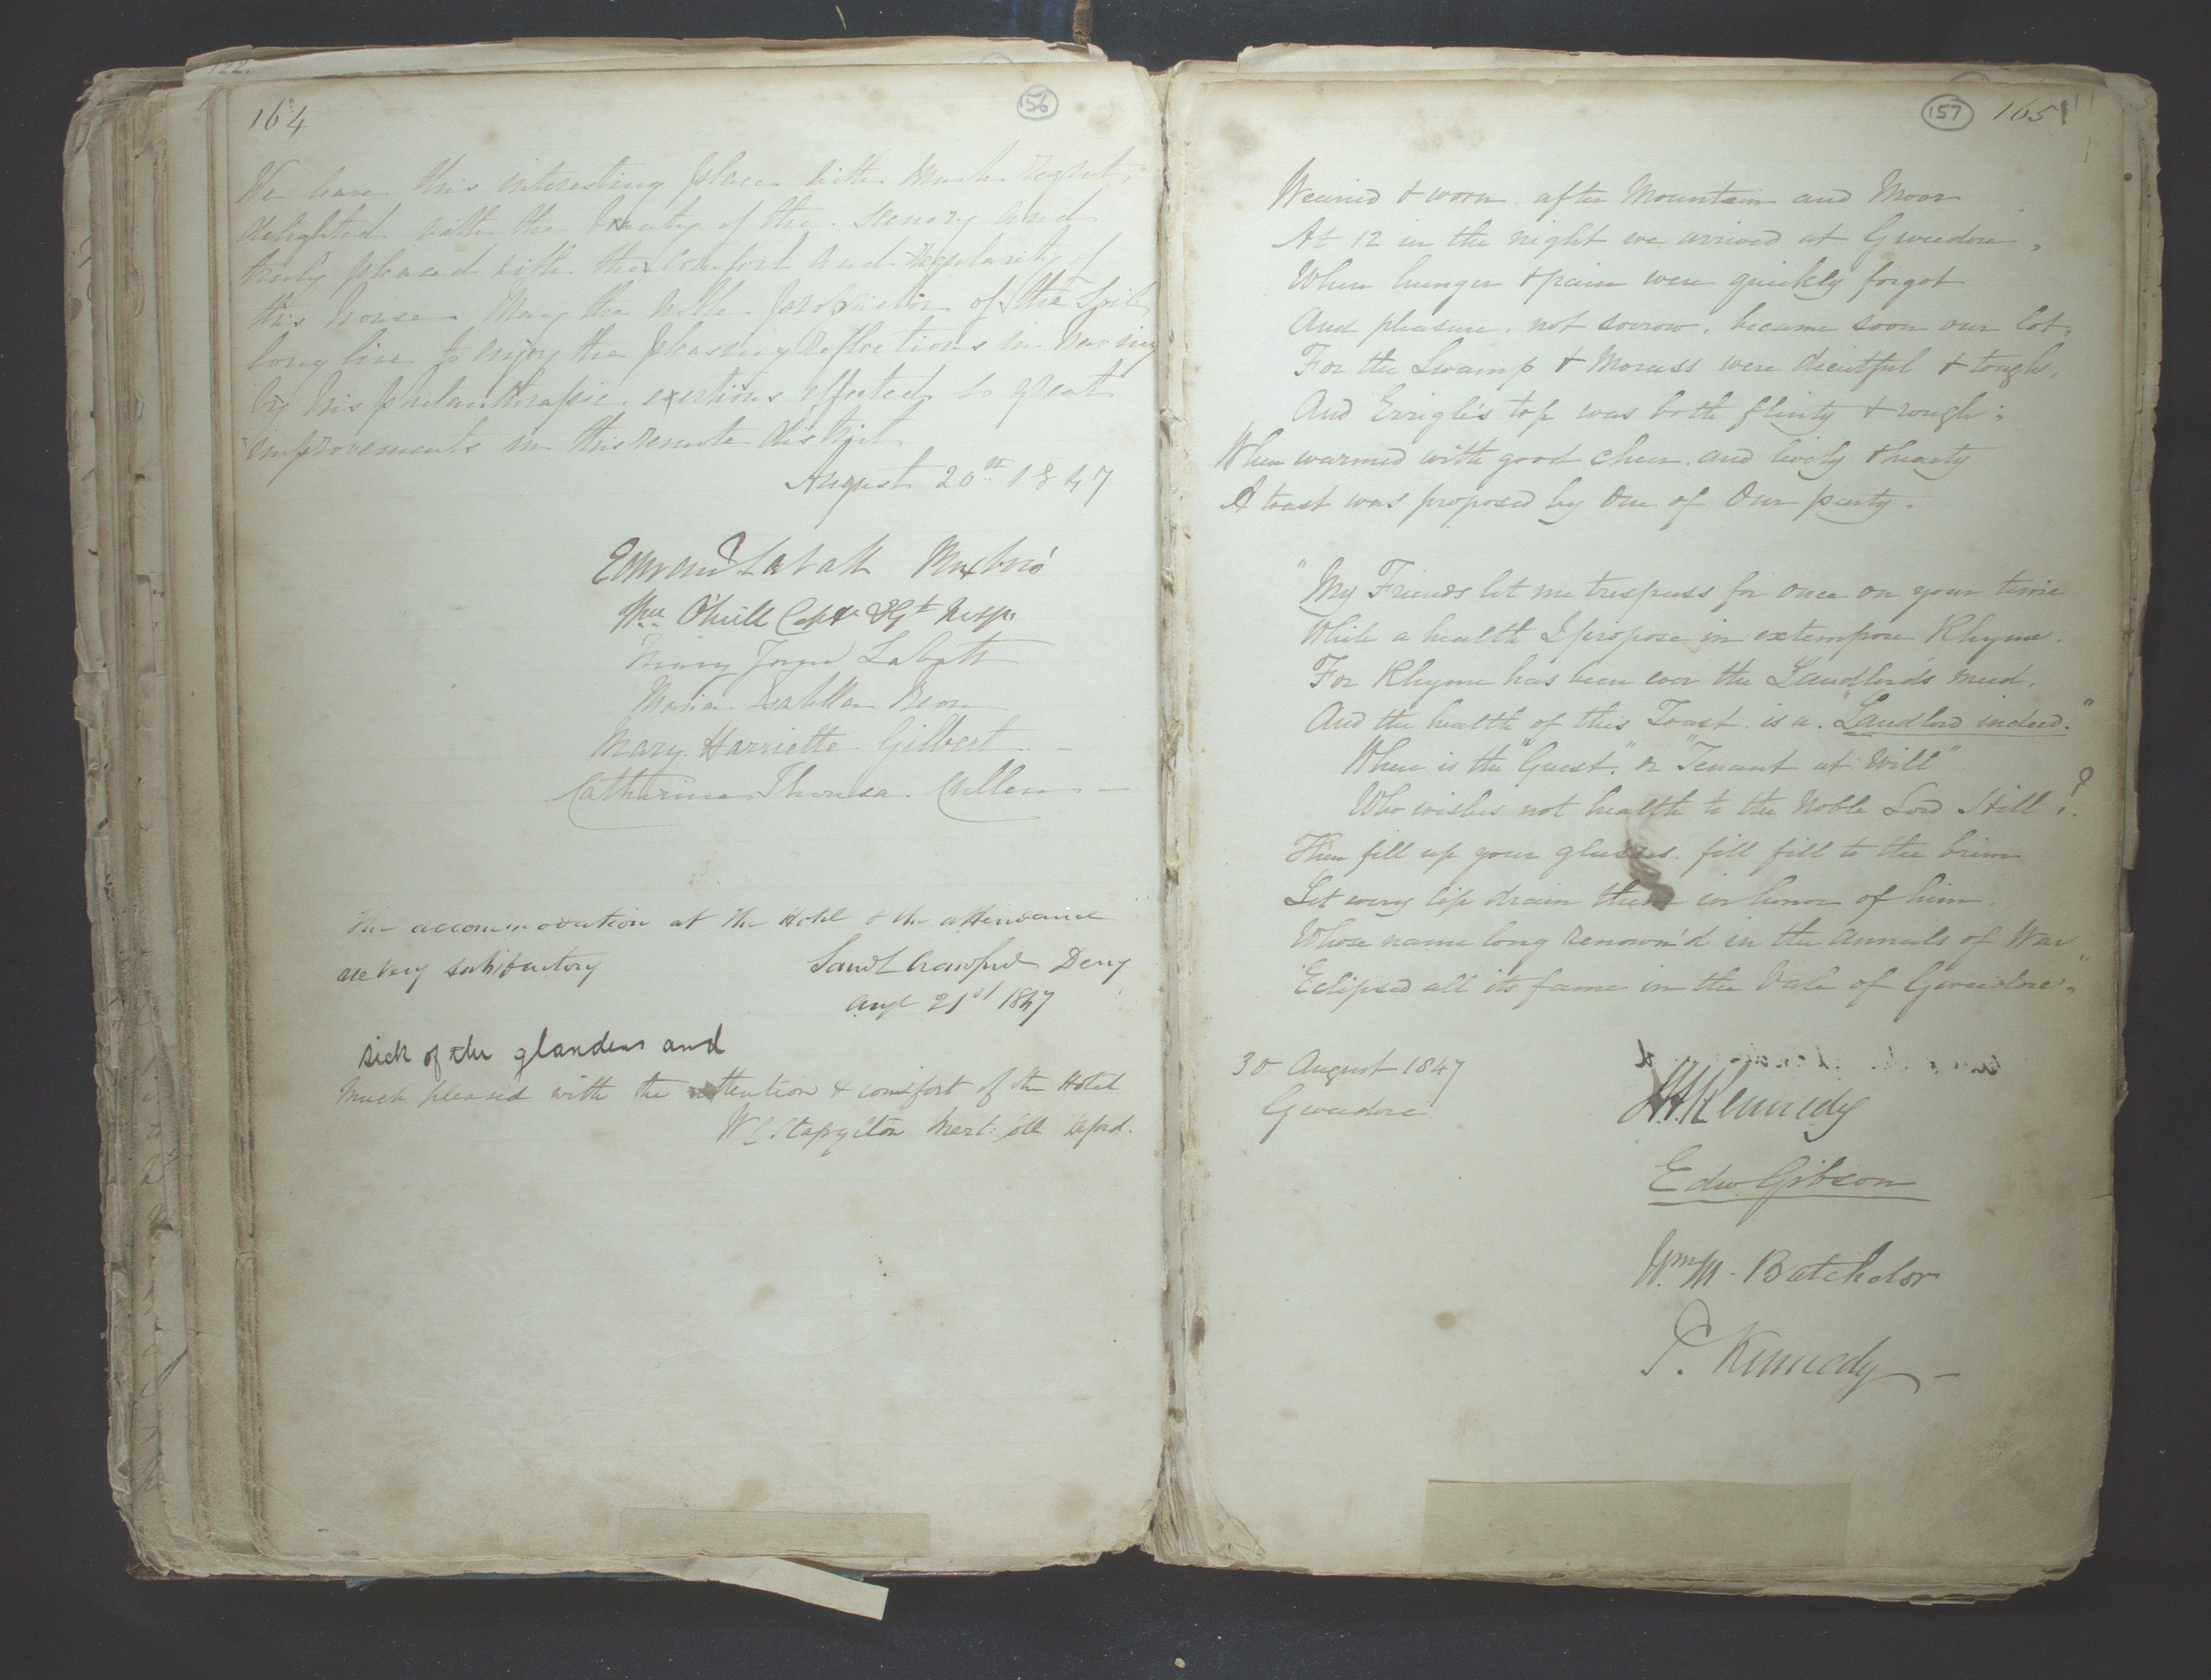 164
156
We leave this interesting place with much regret
delighted with the beauty of the scenery and
truly pleased with the comfort and regularity of
this house. May the noble proprietor of the Soil
long live to enjoy the pleasing reflections in having
by his philanthropic exertions effected so great
improvements in this remote district
August 20th 1847
Edward Labatt
Wm O'Neill
Mary Labatt
Maria Isabella
Mary Harriette Gilbert
Catharine Theresa Cullen
The accommodation at the Hotel & the attendance
are very satisfactory Saml Crawford Derry
Augt 21st 1847
sick of the glanders and
Much pleased with the attention & comfort of the Hotel
W Stapylton Mert: Coll Oxford.
157 165
Wearied & worn after Mountain and Moor
At 12 in the night we arrived at Gweedore,
When hunger & pain were quickly forgot
And pleasure, not sorrow, became soon our lot,
For the Swamp & Morass were deceitful & tough,
And Errigle's top was both flinty & rough;
When warmed with good cheer, and lively & hearty
A toast was proposed by One of Our party.
"My Friends let me trespass for once on your time
While a health I propose in extempore Rhyme.
For Rhyme has been ever the Landlord's meed,
And the health of this Toast is a "Landlord indeed."
Where is the "Guest," or "Tenant at Will"
Who wishes not health to the Noble Lord Hill?
Then fill up your glasses fill fill to the brim
Let every lip drain them in honor of him
Whose name long renown'd in the Annals of War
Eclipsed all its fame in the Vale of Gweedore"
30 August 1847
Gweedore
H. Kennedy
Edw Gibson
Wm M. Batchelor
T. Kennedy